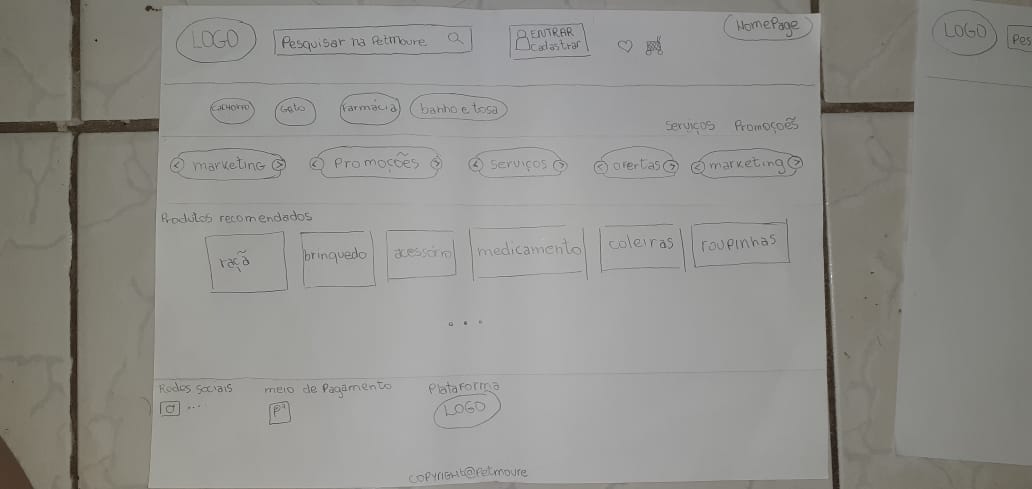 LOGO
Pesquisar na Petmoure
ENTRAR
Cadastrar
HomePage
cachorro
Gato
Farmácia
banho e tosa
Serviços Promoções
< marketing >
< Promoções >
< serviços >
< ofertas >
< marketing >
Produtos recomendados
ração
brinquedo
acessório
medicamento
coleiras
roupinhas
...
Redes sociais
...
meio de Pagamento
Plataforma
LOGO
COPYRIGHt@Petmoure
LOGO
Pes